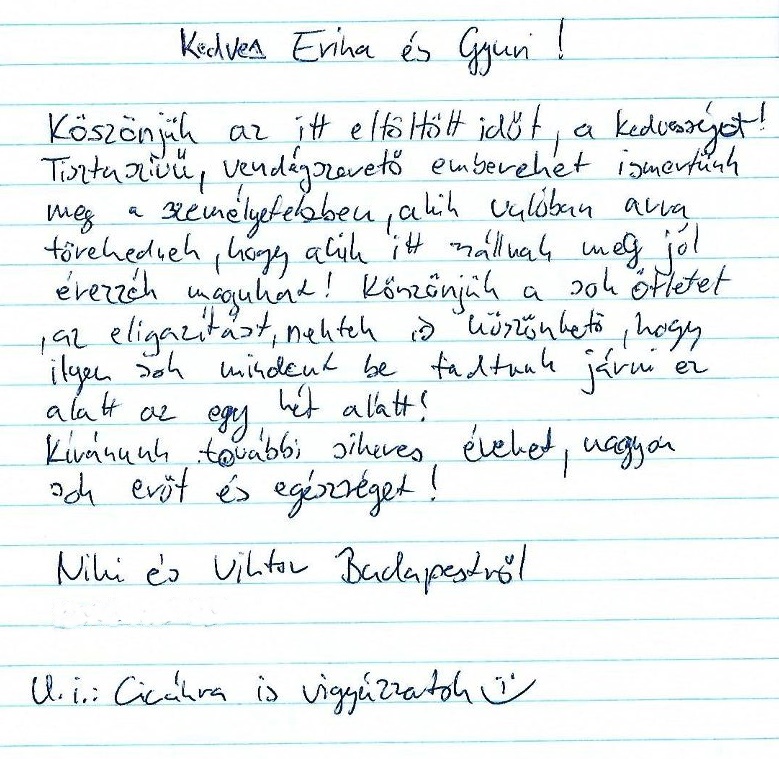 Kedves Erika és Gyuri!
Köszönjük az itt eltöltött időt, a kedvességet!
Tisztaszívű, vendégszerető embereket ismertünk
meg a személyetekben, akik valóban arra
törekednek, hogy akik itt szállnak meg jól
érezzék magukat! Köszönjük a sok ötletet
, az eligazítást, nektek is köszönhető, hogy
ilyen sok mindent be tudtunk járni ez
alatt az egy hét alatt!
Kívánunk további sikeres éveket, nagyon
sok erőt és egészséget!
Niki és Viktor Budapestről
U.i.: Cicákra is vigyázzatok :)